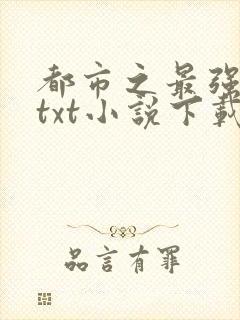 都市之最强
txt小説下載
品言有罪